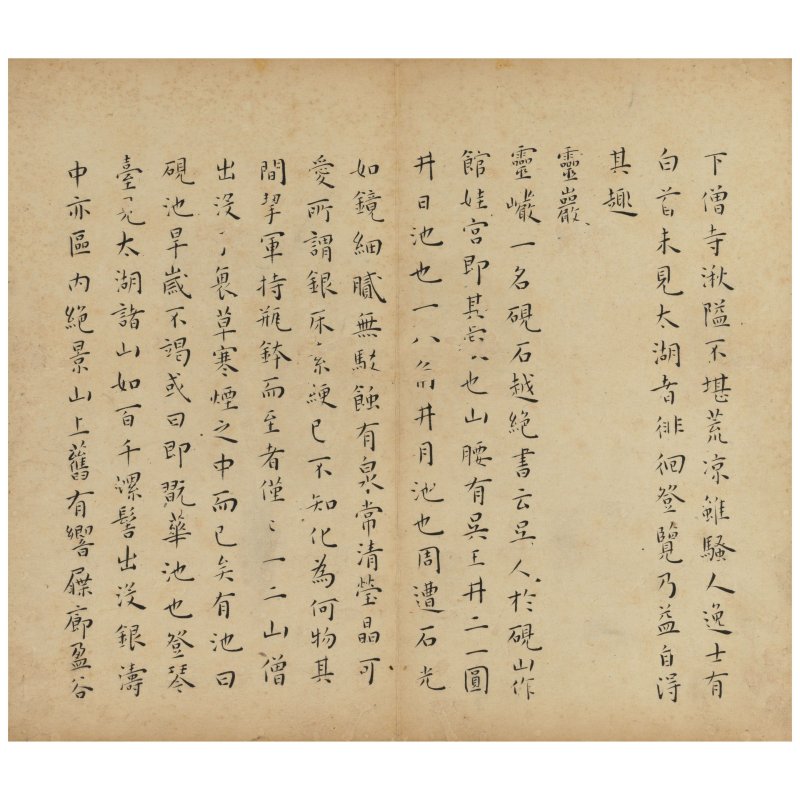 下僧寺湫隘不堪荒凉雖騷人逸士有
白首未見太湖者徘徊登覽乃益自得
其趣
靈巖
靈巗一名硯石越絕書云吳人於硯山作
館娃宮即其處也山腰有吳王井二一圓
井日池也一八角井月池也周遭石光
如鏡細膩無駁蝕有泉常清瑩晶可
愛所謂銀床素綆已不知化為何物其
間挈軍持瓶鉢而至者僅〻一二山僧
出没于衰草寒煙之中而已矣有池曰
硯池旱歲不竭或曰即翫華池也登琴
臺見太湖諸山如百千螺髻出没銀濤
中亦區内絕景山上舊有響屧廊盈谷